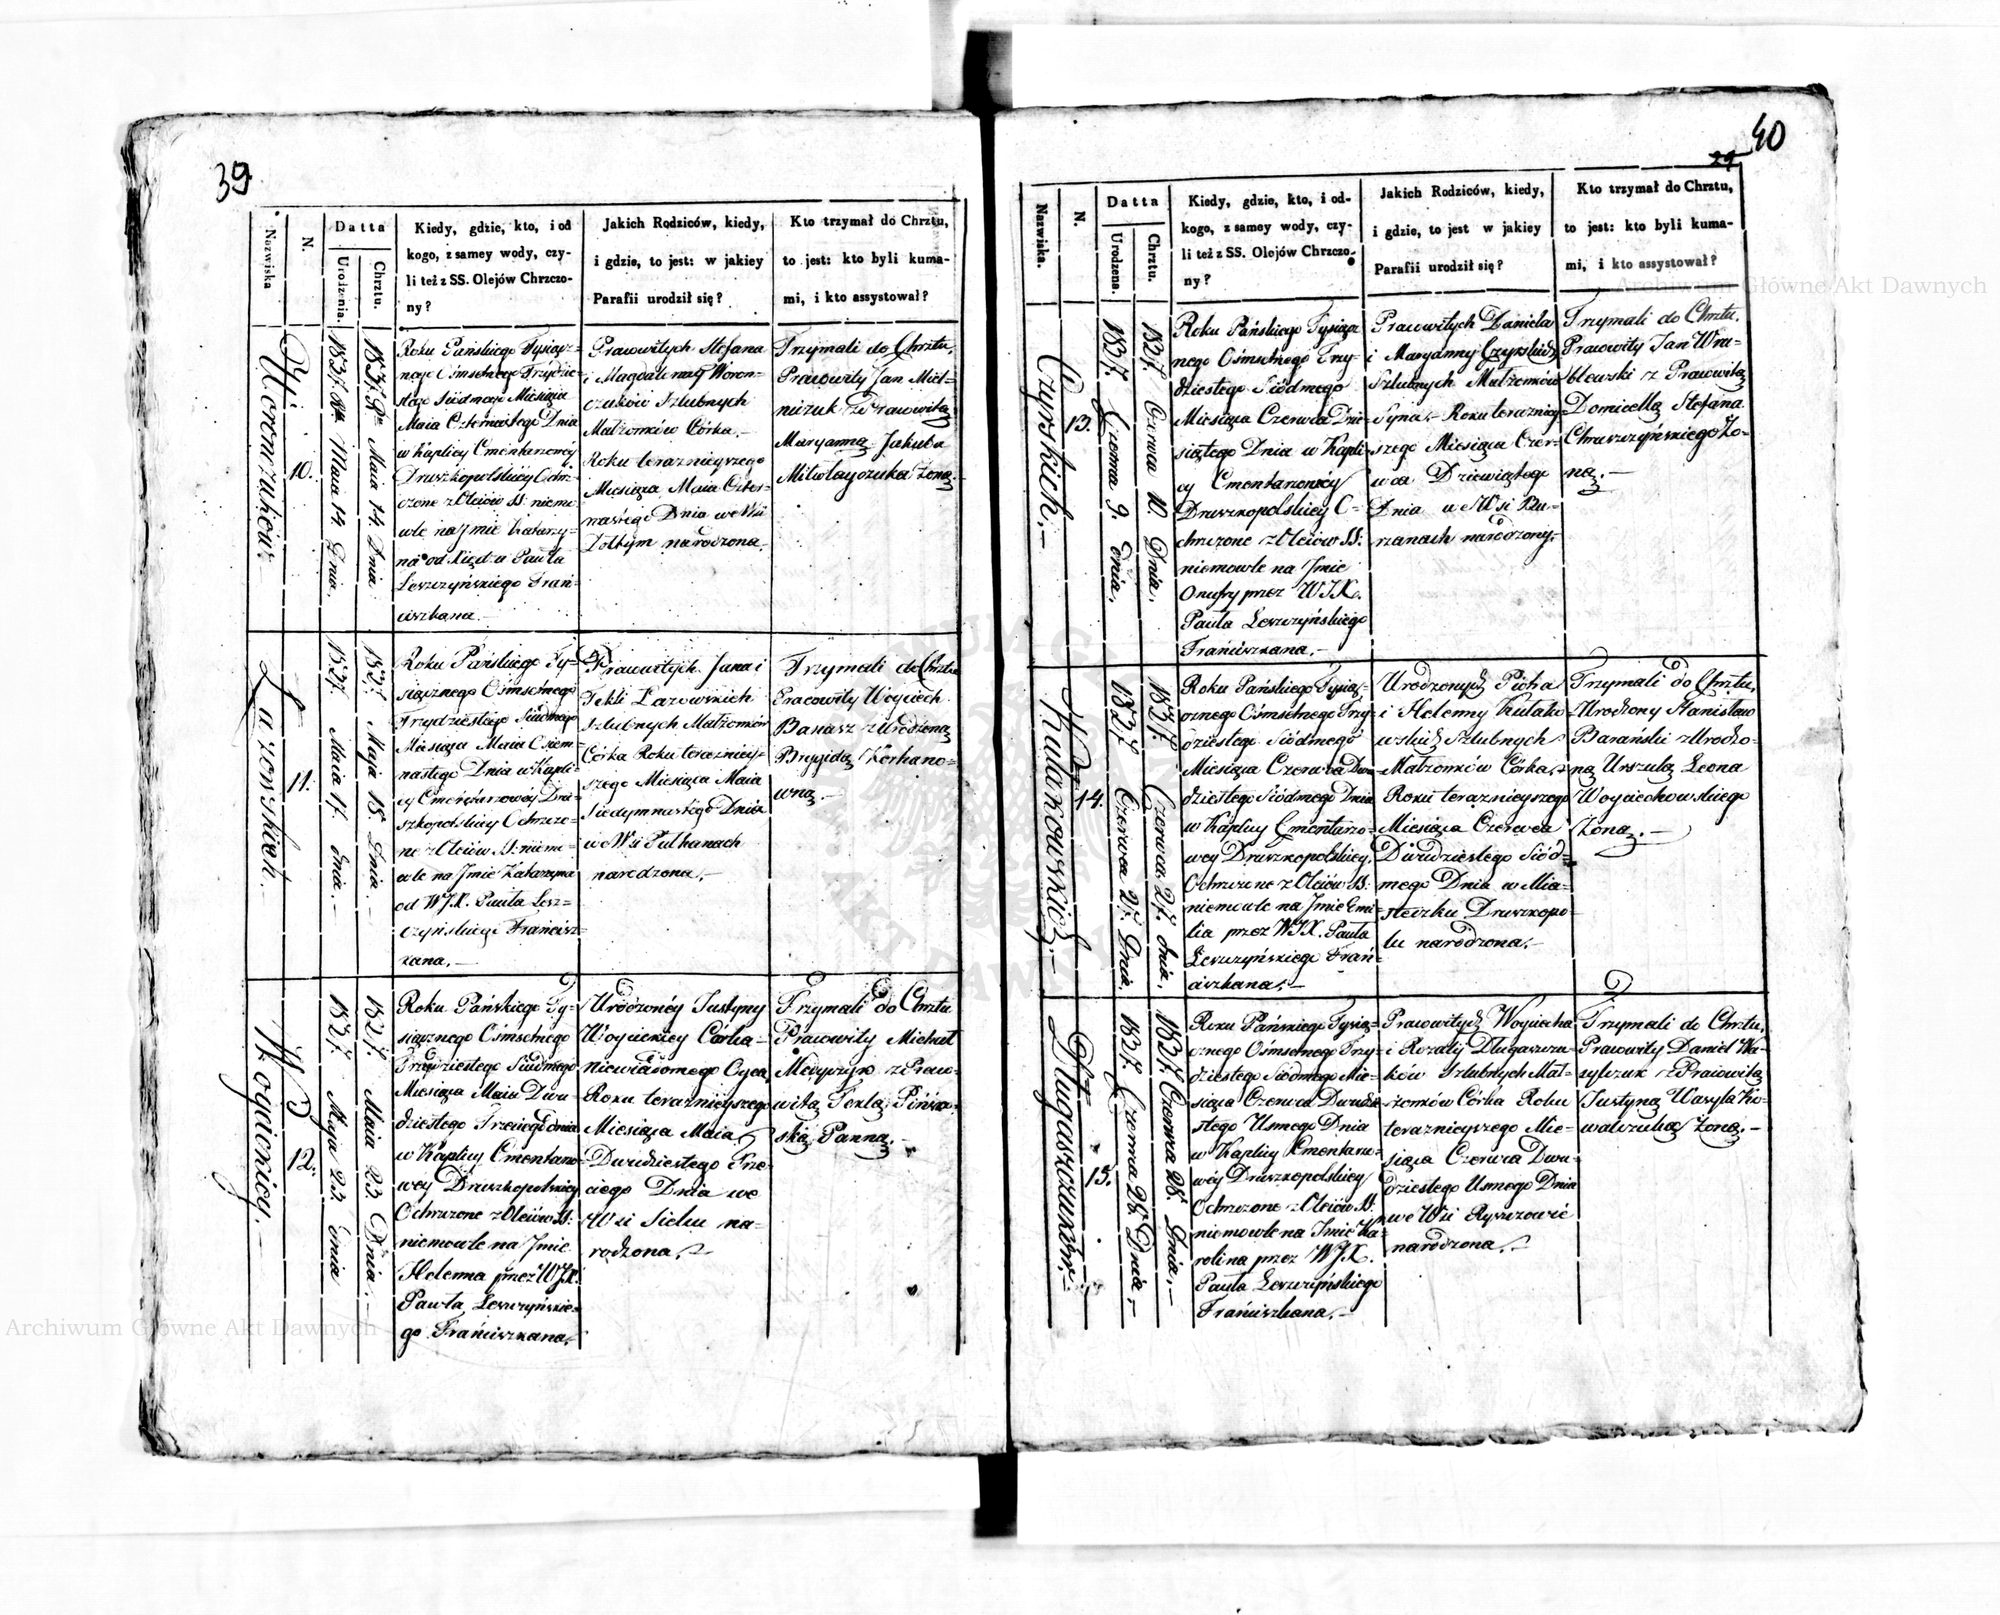 39
Nazwiska
N.
Datta
Urodzenia.
Chrztu.
Kiedy, gdzie, kto, i od
kogo, z samey wody, czy-
li też z SS. Olejów Chrzczo-
ny?
Jakich Rodziców, kiedy,
i gdzie, to jest: w jakiey
Parafii urodził się?
Kto trzymał do Chrztu,
to jest: kto byli kuma-
mi, i kto assystował?
Woronczuków.
10.
1837. Maia 14. Dnia.
1837. Maia 14. Dnia
Roku Pańskiego Tysiącz-
nego Ośmsetnego Trzydzie-
stego Siódmego Miesiąca
Maia Czternastego Dnia
w Kaplicy Cmentarzowéy
Druszkopolskiéy Ochrz-
czone z Oleiów SS: niemo
wle na Jmie Katarzy-
na od Xiędza Pawła
Leszczyńskiego Fran-
ciszkana.
Pracowitych Stefana
i Magdaleny Woron-
czuków Szlubnych
Małżonków Córka.
Roku teraznieyszego
Miesiąca Maia Czter-
nastego Dnia we Wsi
Żołtym narodzona.
Trzymali do Chrztu,
Pracowity Jan Miel-
niczuk z Pracowitą
Maryanną Jakuba
Mikołayczuka żoną.
Lazowskich.
11.
1837. Maia 17. dnia.
1837. Maja 18. Dnia.
Roku Pańskiego Ty-
siącznego Ośmsetnego
Trzydziestego Siódmego
Miesiąca Maia Osiem-
nastego Dnia w Kapli-
cy Cmentarzowéy Dru-
szkopolskiéy Ochrzczo-
ne z Oleiów SS: niemo-
wle na Jmie Katarzyna
od WJX. Pawła Lesz-
czyńskiego Francisz-
kana.
Pracowitych Jana i
Tekli Lazowskich
Szlubnych Małżonków
Córka Roku teraźniey-
szego Miesiąca Maia
Siedymnastego Dnia
we Wsi Pulhanach
narodzona.
Trzymali do Chrztu
Pracowity Woyciech
Banasz z Urodzoną
Brygidą Korhano-
wną.
Woycickiey.
12.
1837. Maja 23. Dnia
1837. Maia 23 Dnia.
Roku Pańskiego Ty-
siącznego Ośmsetnego
Trzydziestego Siódmego
Miesiąca Maia Dwu-
dziestego Trzeciego dnia
w Kaplicy Cmentarzo-
wéy Druszkopolskiéy
Ochrzczone z Oleiów SS:
niemowle na Jmie
Helenna przez WJX.
Pawła Leszczyńskie-
go Franciszkana.
Urodzonéy Justyny
Woycickiey Córka
niewiadomego Oyca,
Roku teraznieyszego
Miesiąca Maia
Dwudziestego Trze-
ciego Dnia we
Wsi Sielcu na-
rodzona.
Trzymali do Chrztu
Pracowity Michał
z Praco-
witą Teklą Pińsz-
ską Panną.
40
29
Nazwiska.
N.
Datta
Urodzenia.
Chrztu.
Kiedy, gdzie, kto, i od-
kogo, z samey wody, czy-
li też z SS. Olejów Chrzczo-
ny?
Jakich Rodziców, kiedy,
i gdzie, to jest w jakiey
Parafii urodził się?
Kto trzymał do Chrztu,
to jest: kto byli kuma-
mi, i kto assystował?
Czyrskich.
13.
1837. Czerwca 9. dnia.
1837. Czerwca 10. Dnia.
Roku Pańskiego Tysiącz
nego Ośmsetnego Trzy-
dziestego Siódmego
Miesiąca Czerwca Dzie-
siątego Dnia w Kapli
cy Cmentarzowéy
Druszkopolskiey O-
chrzczone z Oleiów SS:
niemowle na Jmie
Onufry przez WJX.
Pawła Leszczyńskiego
Franciszkana.
Pracowitych Daniela
i Maryanny Czyrskich
Szlubnych Małżonków
Syna. Roku teraźniey-
szego Miesiąca Czer-
wca Dziewiątego
Dnia we Wsi Bu-
rzanach narodzony.
Trzymali do Chrztu,
Pracowity Jan Wra-
blewski z Pracowitą
Domicellą Stefana
Chraszczyńskiego Żo-
ną.
Kulakowskich.
14.
1837. Czerwca 27. Dnia.
1837. Czerwca 27. dnia.
Roku Pańskiego Tysiąc-
znego Ośmsetnego Trzy-
dziestego Siódmego
Miesiąca Czerwca Dwu-
dziestego Siódmego Dnia
w Kaplicy Cmentarzo-
wey Druszkopolskiey
Ochrzczone z Oleiów SS:
niemowle na Jmie Emi-
lia przez WJX. Pawła
Leszczyńskiego Fran-
ciszkana.
Urodzonych Piotra
i Helenny Kulako-
wskich Szlubnych
Małżonków Córka,
Roku teraznieyszego
Miesiąca Czerwca
Dwudziestego Siód-
mego Dnia w Mia-
steczku Druszkopo-
lu narodzona.
Trzymali do Chrztu,
Urodzony Stanisław
Barański z Urodzo-
ną Urszulą Leona
Woyciechowskiego
Żoną.
Długaszczuków.
15.
1837. Czerwca 28. Dnia.
1837. Czerwca 28. Dnia.
Roku Pańskiego Tysiąc-
znego Ośmsetnego Trzy-
dziestego Siódmego Mie-
siąca Czerwca Dwudzie
stego Usmego Dnia
w Kaplicy Cmentarzo-
wéy Druszkopolskiéy
Ochrzczone z Oleiów SS.
niemowle na Jmie Ka-
rolina przez WJX.
Pawła Leszczyńskiego
Franciszkana.
Pracowitych Woyciecha
i Rozalij Długaszczu-
ków Szlubnych Mał-
żonków Córka Roku
teraznieyszego Mie-
siąca Czerwca Dwu-
dziestego Usmego Dnia
we Wsi Ryszczowie
narodzona.
Trzymali do Chrztu,
Pracowity Daniel Wa-
sylczuk z Pracowitą
Justyną Wasyla Ko-
walczuka Żoną.
Archiwum Główne Akt Dawnych
Archiwum Główne Akt Dawnych